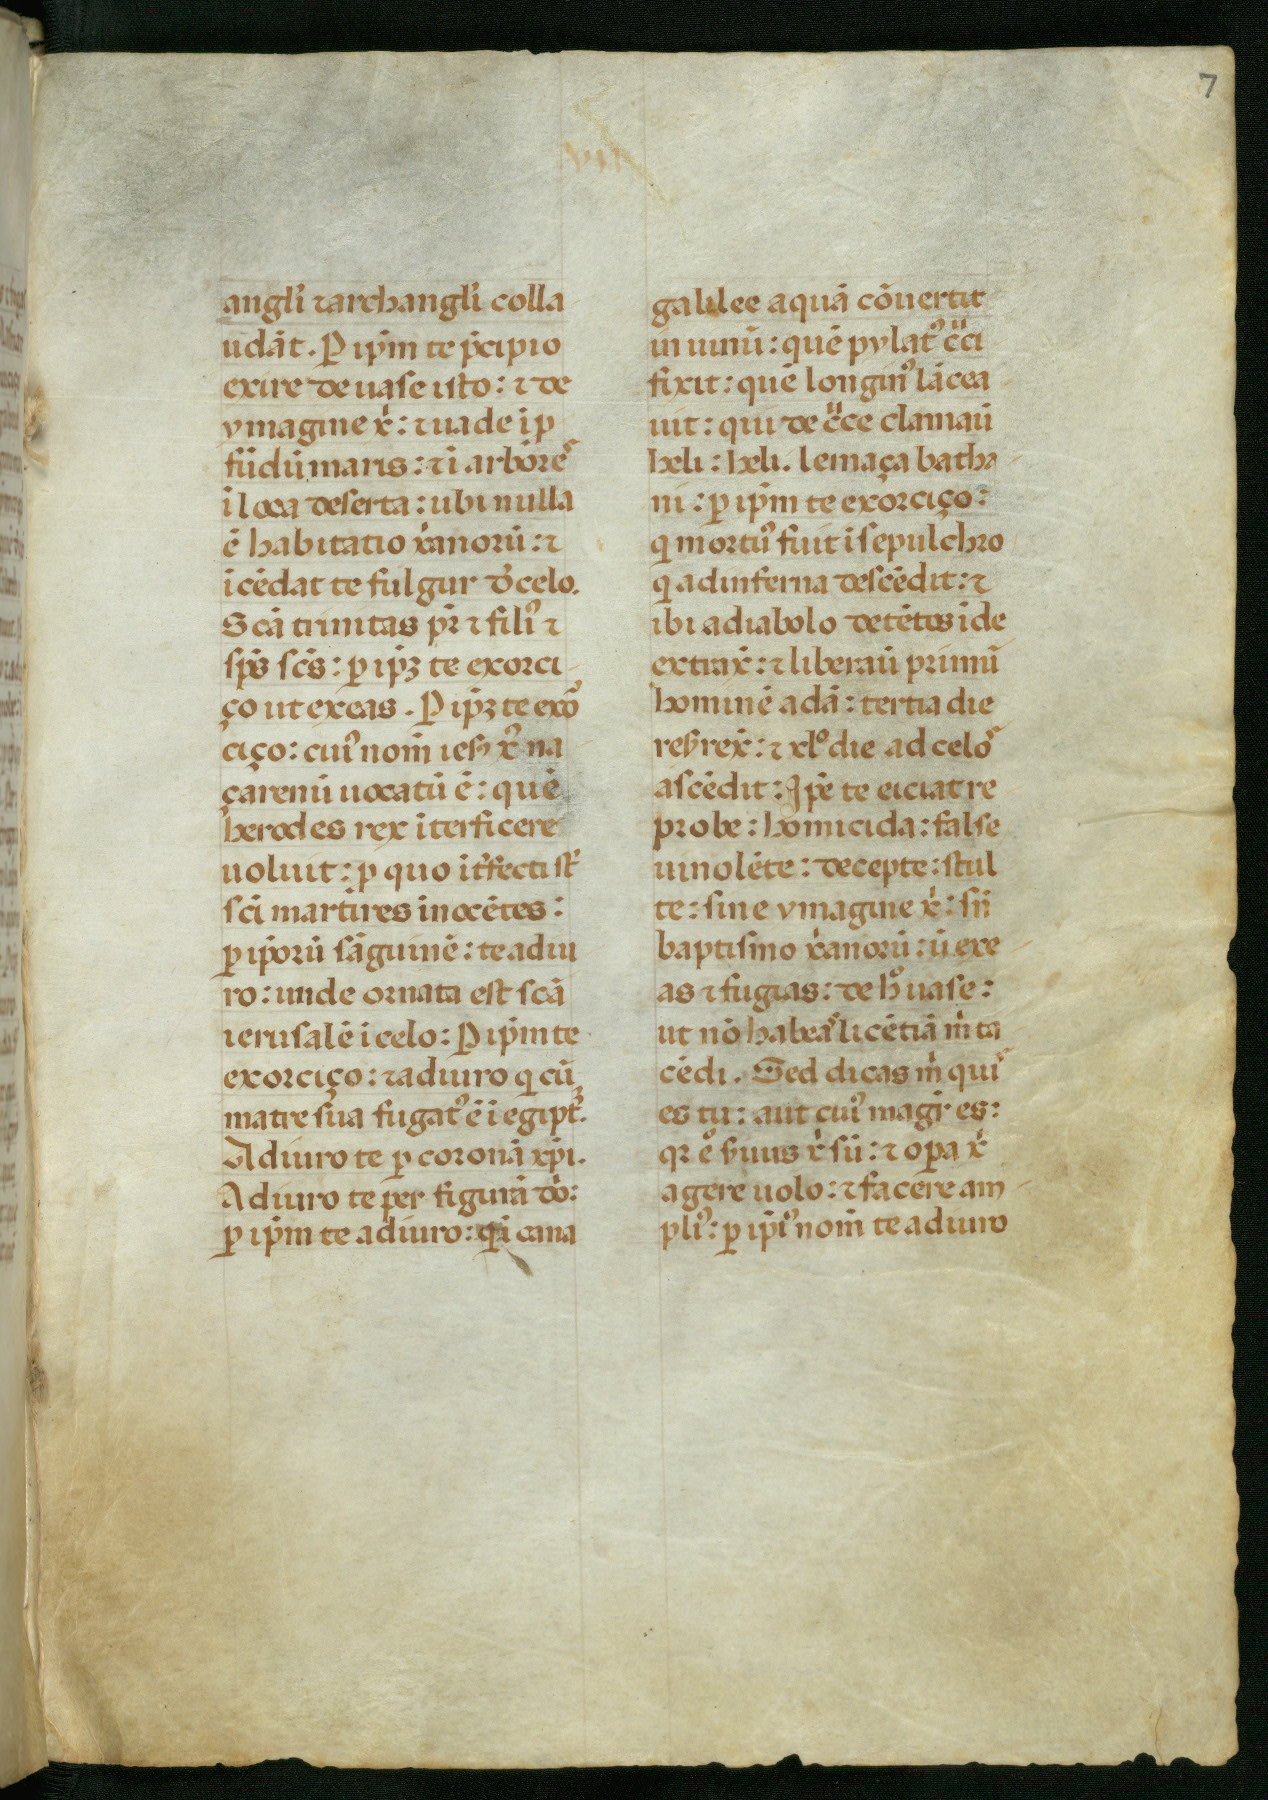 7
angl̃i ⁊ archangl̃i colla
udãt. P̱ ip̃m te p̃cipio
exire de uase isto: ⁊ de
ymagine x̃: ⁊ uade ĩ p̱
fũdũ maris: ⁊ ĩ arbore᷒
ĩ loca deserta: ubi nulla
ẽ habitatio x̃anorũ: ⁊
ĩcẽdat te fulgur d̃ celo.
Scã trinitas pr̃ ⁊ fili᷒ ⁊
sp̃s sc̃s: p̱ ip̃ꝫ te exorci
ço ut exeas. P̱ ip̃ꝫ te exõ
ciço: cui᷒ nom̃ iesꝰ x̃ na
çarenũ uocatũ ẽ: quẽ
herodes rex ĩterficere
uoluit: p̱ quo ĩt̃fecti st̃
sc̃i martires inocẽtes:
p̱ ip̃orũ sãguinẽ: te adiu
ro: unde ornata est scã
ierusalẽ ĩ celo: P̱ ip̃m te
exorciço: ⁊ adiuro q̱ cũ
matre sua fugat᷒ ẽ ĩ egipt̃.
Adiuro te p̱ coronã xp̃i.
Adiuro te per figurã dõ:
p̱ ip̃m te adiuro: q̃ ĩ cana
galilee aquã cõuertit
in uinũ: quẽ pylat᷒ c̃ci
fixit: quẽ longin᷒ lãcea
uit: qui de c̃ce clamaũ
heli: heli. lemaça batha
ni: p̱ ip̃m te exorciço:
q̱ mortu᷒ fuit ĩ sepulchro
q̱ ad inferna descẽdit: ⁊
ibi a diabolo detẽtos ĩde
extrax̃: ⁊ liberaũ primũ
hominẽ adã: tertia die
resꝰrex̃: ⁊ xlº die ad celo᷒
ascẽdit: Ip̃e te eiciat re
probe: homicida: false
uinolẽte: decepte: stul
te: sine ymagine x̃: sñ
baptismo x̃anorũ: ũ exe
as ⁊ fugias: de hº uase:
ut nõ habea᷒ licẽtiã m̃ ta
cẽdi. Sed dicas m̃ qui᷒
es tu: aut cui᷒ magr̃ es:
qr̃ eº ẜuus x̃ sũ: ⁊ op̱a x̃
agere uolo: ⁊ facere am
pli᷒: p̱ ip̃i᷒ nom̃ te adiuro